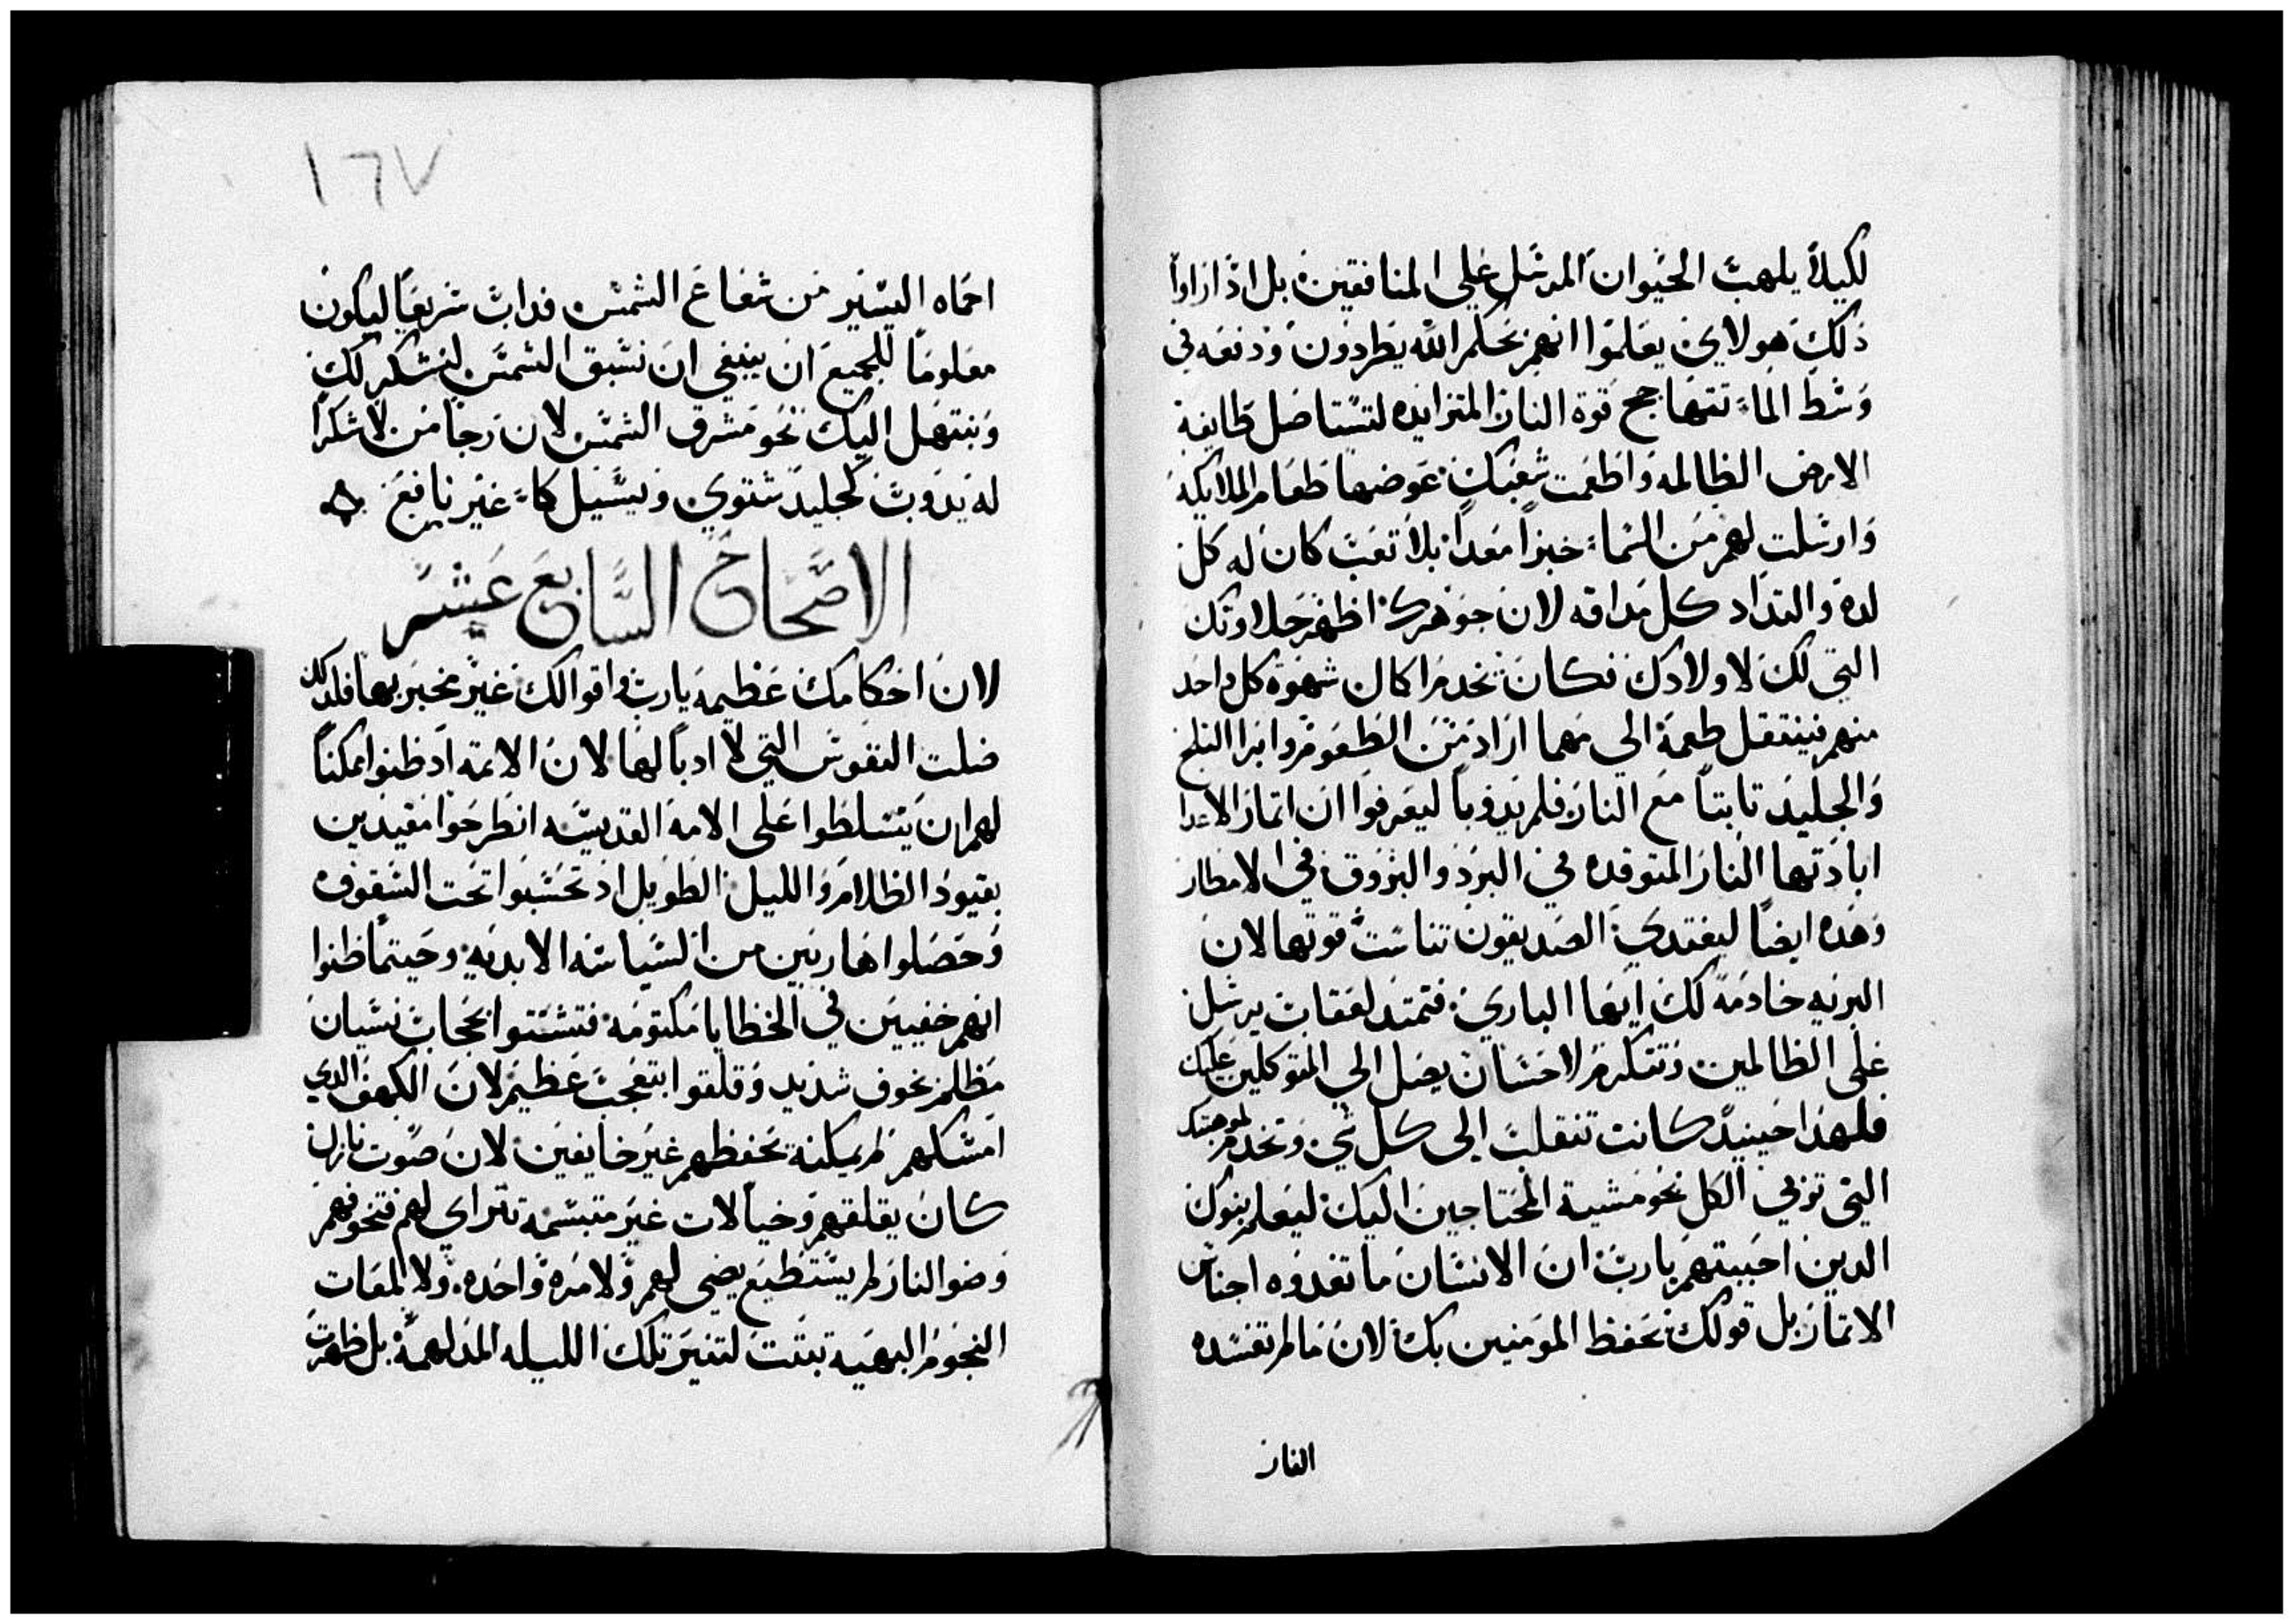 لكيلا يلهب الحيوان المرسل علي المنافقين بل اذا راوا
ذلك هولاي يعلموا انهم بحكم الله يطردون ودفعه في
وسط الماء تتهاجج قوة النار المتزايده لتستاصل طايفة
الارض الظالمه واطعمت شعبك عوضها طعام الملايكه
وارسلت لهم من السماء خبزا معدا بلا تعب كان له كل
لده والتداد كل مداقه لان جوهرك اظهر حلاوتك
التي لك لاولادك فكان يخدم اكمال شهوة كل واحد
منهم فينتقل طعمه الي مهما اراد من الطعوم وامرا الثلج
والجليد تابتا مع النار فلم يدوبا ليعرفوا ان اتمار الاعدا
ابادتها النار المتوقده في البرد والبروق في الامطار
وهده ايضا ليغتدي الصديقون تناست قوتها لان
البريه خادمة لك ايها الباري فتمتد لعقاب يرسل
علي الظالمين وتتكرم لاحسان يصل الي المتوكلين عليك
فلهدا حينيد كانت تنقلب الي كل شي وتخدم لموهبتك
التي تربي الكل نحو مشية المحتاجين اليك ليعلم بنوك
الدين احببتهم يارب ان الانسان ما تغدوه اجناس
الاتمار بل قولك يحفظ المومنين بك لان ما لم تفسده
النار
١٦٧
احماه اليسير من شعاع الشمس فداب سريعا ليكون
معلوما للجميع ان ينبغي ان نسبق الشمس لنشكر لك
ونبتهل اليك نحو مشرق الشمس لان رجا من لا شكرا
له يدوب كجليد شتوي ويسيل كماء غير نافع ۞
الاصحاح السابع عشر
لان احكامك عظيمه يارب واقوالك غير مخبر بها فلدلك
ضلت النفوس التي لا ادبا لها لان الاتمه اد ظنوا ممكنا
لهم ان يتسلطوا على الامه القديسه انطرحوا مقيدين
بقيود الظلام والليل الطويل اد تحسبوا تحت السقوف
وحصلوا هاربين من السياسه الابديه وحيتما ظنوا
انهم خفيين في الخطايا مكتومه فتشتتوا بحجاب نسيان
مظلم بخوف شديد وقلقوا بتعجب عظيم لان الكهف الدي
امسكهم لم يمكنه تحفظهم غير خايفين لان صوت نازل
كان يقلقهم وخيالات غير متبسمه تتراي لهم فتخوفهم
وضو النار لم يستطيع يضي لهم ولا مره واحده ولا لمعات
النجوم البهيه تبتت لتنير تلك الليله المدلهمة بل ظهرت